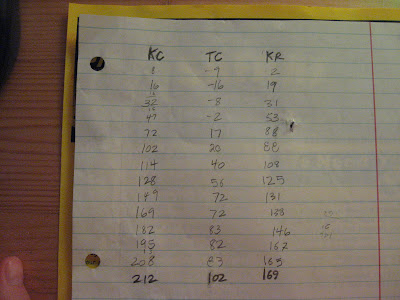 KC TC KR
8 -9 2
16 -16 19
32 -8 31
47 -2 53
72 17 88
102 20 88
114 40 108
128 56 125
149 72 131
169 72 138
182 83 146
195 82 162
208 83 165
212 102 169